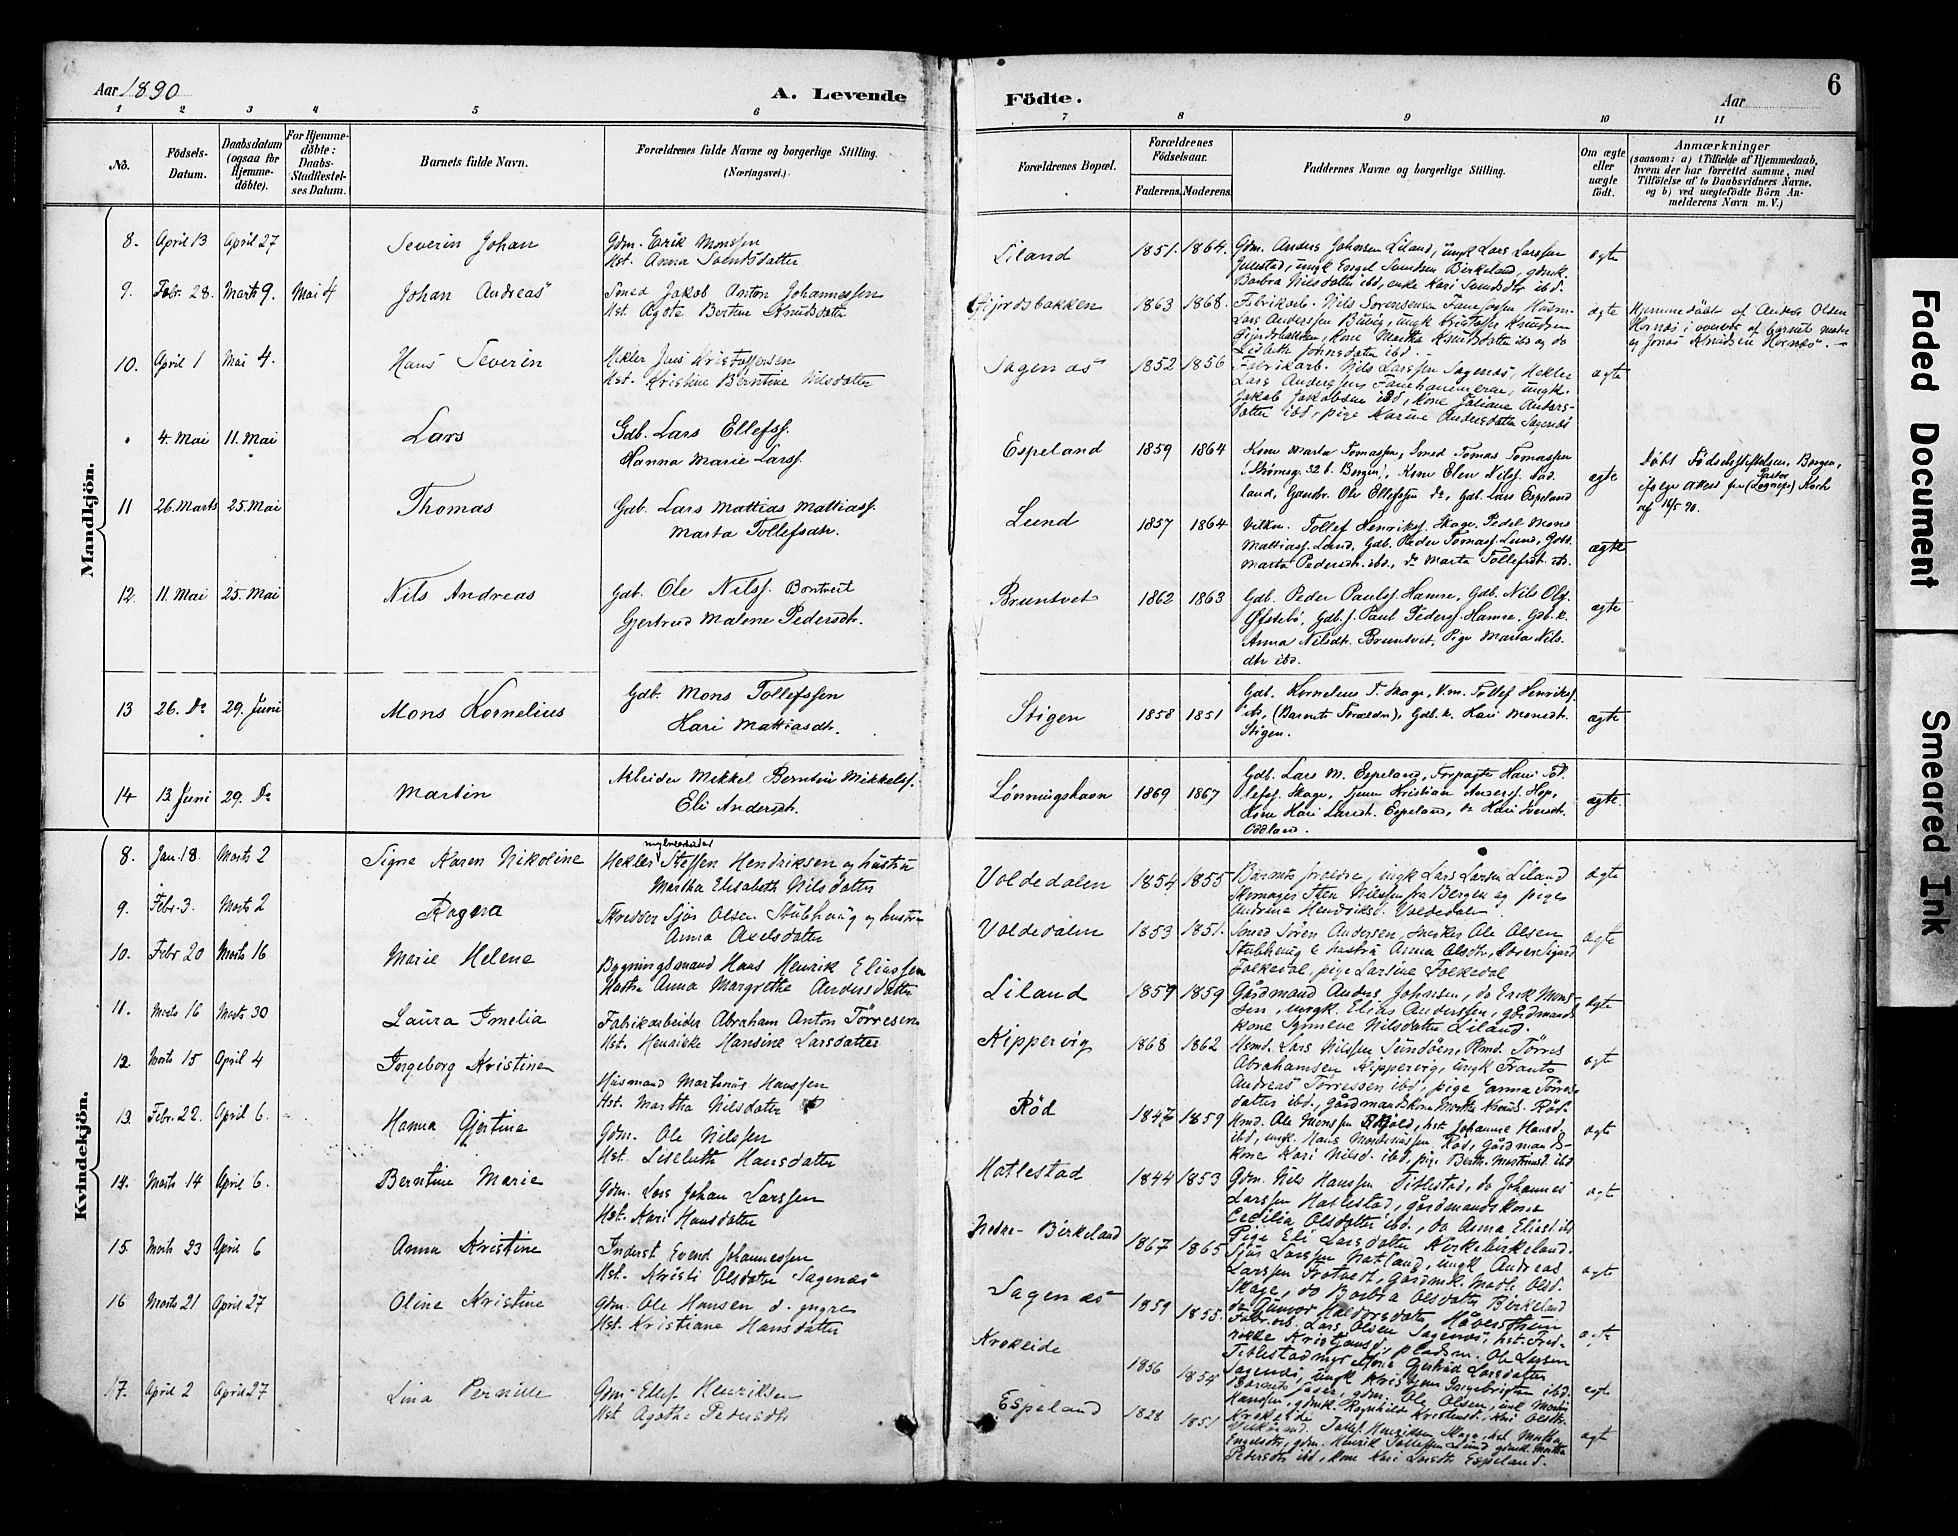 Aar 1890
A. Levende
Födte.
Aar
6
1 2 3 4 5 6 7 8 9 10 11
No.
Födsels-Datum.
Daabsdatum (ogsaa for Hjemme-döbte).
For Hjemme-döbte: Daabs-Stadfæstel-ses Datum.
Barnets fulde Navn.
Forældrenes fulde Navne og borgerlige Stilling. (Næringsvei.)
Forældrenes Bopæl.
Forældrenes Födselsaar.
Faderens. Moderens.
Faddernes Navne og borgerlige Stilling.
Om ægte eller uægte födt.
Anmærkninger
(saasom: a) i Tilfælde af Hjemmedaab, hvem der har forrettet samme, med Tilföielse af to Daabsvidners Navne, og b) ved uægtefödte Börn An-melderens Navn m. V.)
Mandkjön.
8. April 13 April 27 Severin Johan
Gdm. Erik Monssen
Hst. Anna Svendsdatter
Liland 1851. 1864.
Gdm. Anders Johnsen Liland, ungk Lars Larssen
ungk Engel Samdsen Birkeland, gdmk.
Barbra Nilsdatter ibd, enke Kari ibd.
ægte
9. Febr. 28. Marts 9. Mai 4 Johan Andreas
Smed Jakob Anton Johannessen
Hst. Agote Bertine Knudsdatter
Gjjordsbakken 1863 1868.
Fabrikarb. Nils Sorensensen
Lars Anderssen ungk Kristoffer Knudsen
Gjjordsbakken, Kone Martha Knudsdatter ibd og do
Lisbeth Johnsdatter ibd.
ægte
Hjemmedöbt af Anders Olsen
Hornæs i overv. af barnets moder
og Jonas Knudsen Hornæs.
10. April 1 Mai 4. Hans Severin
Hekler Jens Kristoffersen
Hst. Kristine Berntine Nilsdatter
Sagenæs 1852 1856
Fabrikarb. Nils Larssen Sagenæs, Hekler
Lars Anderssen ungk.
Jakob Jakobsen ibd, Kone Juliane Anders-
datter ibd, pige Karine Andersdatter Sagenæs
ægte
4. Mai 11. Mai Lars
Gdb. Lars Ellefss.
Hanna Marie Larss.
Espeland 1859 1864
Kone Marta Tomassen, Smed Tomas Tomassen
(Strømsg. 32 b. Bergen), Kone Elen Nilss.
land, Gaardbr. Ole Ellefssen Do, Gdb. Lars Espeland
ægte
Døbt Födselsstiftelsen, Bergen,
ifølge attest fra Pastor Koch
af 16/5 90.
11 26. Marts 25. Mai Thomas
Gdb. Lars Mattias Mattiass.
Marta Tollefsdtr.
Lund 1857 1864
Tollef Henrikss. Skage, Pedel Mons
Mattiass. Lund, Gdb. Peder Tomass. Lund,
Marta Pedersdt. ibd., Do Marta Tollefsdt. ib.
ægte
12. 11. Mai 25. Mai Nils Andreas
Gdb. Ole Nilss. Bontveit
Gjertrud Malene Pedersdtr.
Bruntvet 1862 1863
Gdb. Peder Paulss. Hamre, Gdb. Nils Ols.
Øfstebö, Gdb.s. Paul Peders. Hamre, Gdb.k.
Anna Nilsdtr. Bruntvet, Pige Marta Nils-
dtr ibd.
ægte
13 26. Do 29. Juni Mons Kornelius
Gdb. Mons Tollefssen
Kari Mattiasdtr.
Stigen 1858 1851
Gdb. Kornelius T. Skage, V.m. Tollef Henrikss.
ib, (Barnets Foræld), Gdb.k. Kari Monsdt.
Stigen.
ægte
14 13. Juni 29. Do Martin
Arbeider Mikkel Berntin Mikkelss.
Eli Andersdt.
Lönningshavn 1869 1867
Gdb. Lars M. Espeland, Kari Tol-
lefss. Skage, Kristian Anderss. Hop,
Kone Kari Larsdt. Espeland, Do Kari Iversdt.
Oddland.
ægte.
Kvindekjön.
8. Jan. 18. Marts 2 Signe Karen Nikoline
Hekler Steffen Hendriksen og hustru
Martha Elisabeth Nilsdatter
Voldedalen 1854 1855
Barnets foreldre, ungk Lars Larsen Liland
Skomager Sten Nilssen fra Bergen og pige
Andrine Henriksd. Voldedalen
ægte
9. Febr. 3. Marts 2 Ragna
Skredder Sjur Olsen Stubhoug og hustru
Anna Axelsdatter
Voldedalen 1853 1851.
Smed Sören Andersen, Ole Olsen
Stubhoug & hustru Anna Olsdtr, Sigurd
Folkedal, pige Larsine Folkedal
ægte
10. Febr 20 Marts 16 Marie Helene
Bygningsmand Hans Henrik Eliassen
Hustru Anna Margrethe Andersdatter
Liland 1859 1859
Gårdmand Anders Johnsen, do Erik Mons-
sen, ungk. Elias Anderssen, gårdmands-
kone Synneve Nilsdatter Liland.
ægte
11. Marts 16 Marts 30 Laura Emelia
Fabrikarbeider Abraham Anton Törresen
Hst. Henrikke Hansine Larsdatter
Kippervig 1868 1862
Husmd. Lars Nilssen Sundöen, Hmd. Törres
Abrahamsen Kippervig, ungk Frants
Andreas Törressen ibd, pige Hanna Törres-
datter ibd, gårdmandskone Martha Knuds. Röd.
ægte
12 Marts 15 April 4 Ingeborg Kristine
Husmand Martinus Hanssen
Hst. Martha Nilsdatter
Röd 1847 1859
Hmd. Ole Monssen Skjold, hst Johanne Hansd.
ibd, ungk. Hans Martinussen Röd, gårdmands-
kone Kari Nilsd. ibd, pige Berthe Martinusd. ibd
ægte
13. Febr. 22. April 6. Hanna Gjertine
Gdm. Ole Nilssen
Hst. Liseluth Hansdatter
Hatlestad 1844 1853
Gdm. Nils Hanssen Titlestad, do Johannes
Larssen Hatlestad, gårdmandskone
Cecilia Olsdatter ibd., do Anna Eliasd ibd
ægte
14. Marts 14 April 6. Berntine Marie
Gdm. Lars Johan Larssen
Hst. Kari Hansdatter
Nedre-Birkeland 1867 1865
Pige Eli Larsdatter Kirkebirkeland.
Sjur Larssen Natland, ungk Andreas
Larssen Totvedt, gårdmk. Marth. Olsd.
Skage, do Barbra Olsdatter Birkeland
do Gunvor Haldorsdatter,
ægte
15. Marts 23 April 6 Anna Kristine
Inderst Svend Johannessen
Hst. Kristi Olsdatter Sagenæs
Sagenæs 1859 1855.
Fabr.arb. Lars Olsen Sagenæs, hst. Fred-
rikke Kristjansd, pladsm. Ole Larssen
Titlestadmyr, Kone Gjertrud Larsdatter
Sagenæs, ungk Kristen Ingebrigtsen ibd.
ægte
16 Marts 21 April 27 Oline Kristine
Gdm. Ole Hansen d. yngre
Hst. Kristiane Hansdatter
Krokeide 1856 1854
Barnets fader, gdm. Ole Olsen, ink Martin
Hanssen, gdmk. Ragnhilde Kristensd., Kari Olsdtr.
Krokeide
ægte
17. April 2 April 27 Lina Pernille
Gdm. Ellef Henriksen
Hst. Agothe Pedersdtr
Espeland 1828 1851
Tollef Henriksen Skage, hst. Martha
Engelsdtr, gdm. Henrik Tollefsen Lund, gdmk. Martha
Pedersdtr ibd, Kone Kari Larsdtr Espeland.
ægte
Faded Document
Smeared Ink